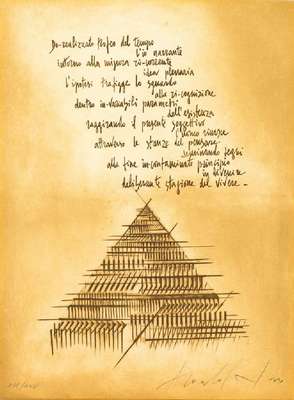 De-realizzato tropico del Tempo
l'io narrante
intorno alla misura ri-corrente
idea plenaria
l'ipotesi trafigge lo sguardo
alla ri-cognizione
dentro in-variabili parametri
dell'esistenza
raggirando il presente soggettivo
attraverso le stanze del pensare
seminando segni
alla fine in-contaminato principio
in divenire
deliberante stagione del vivere